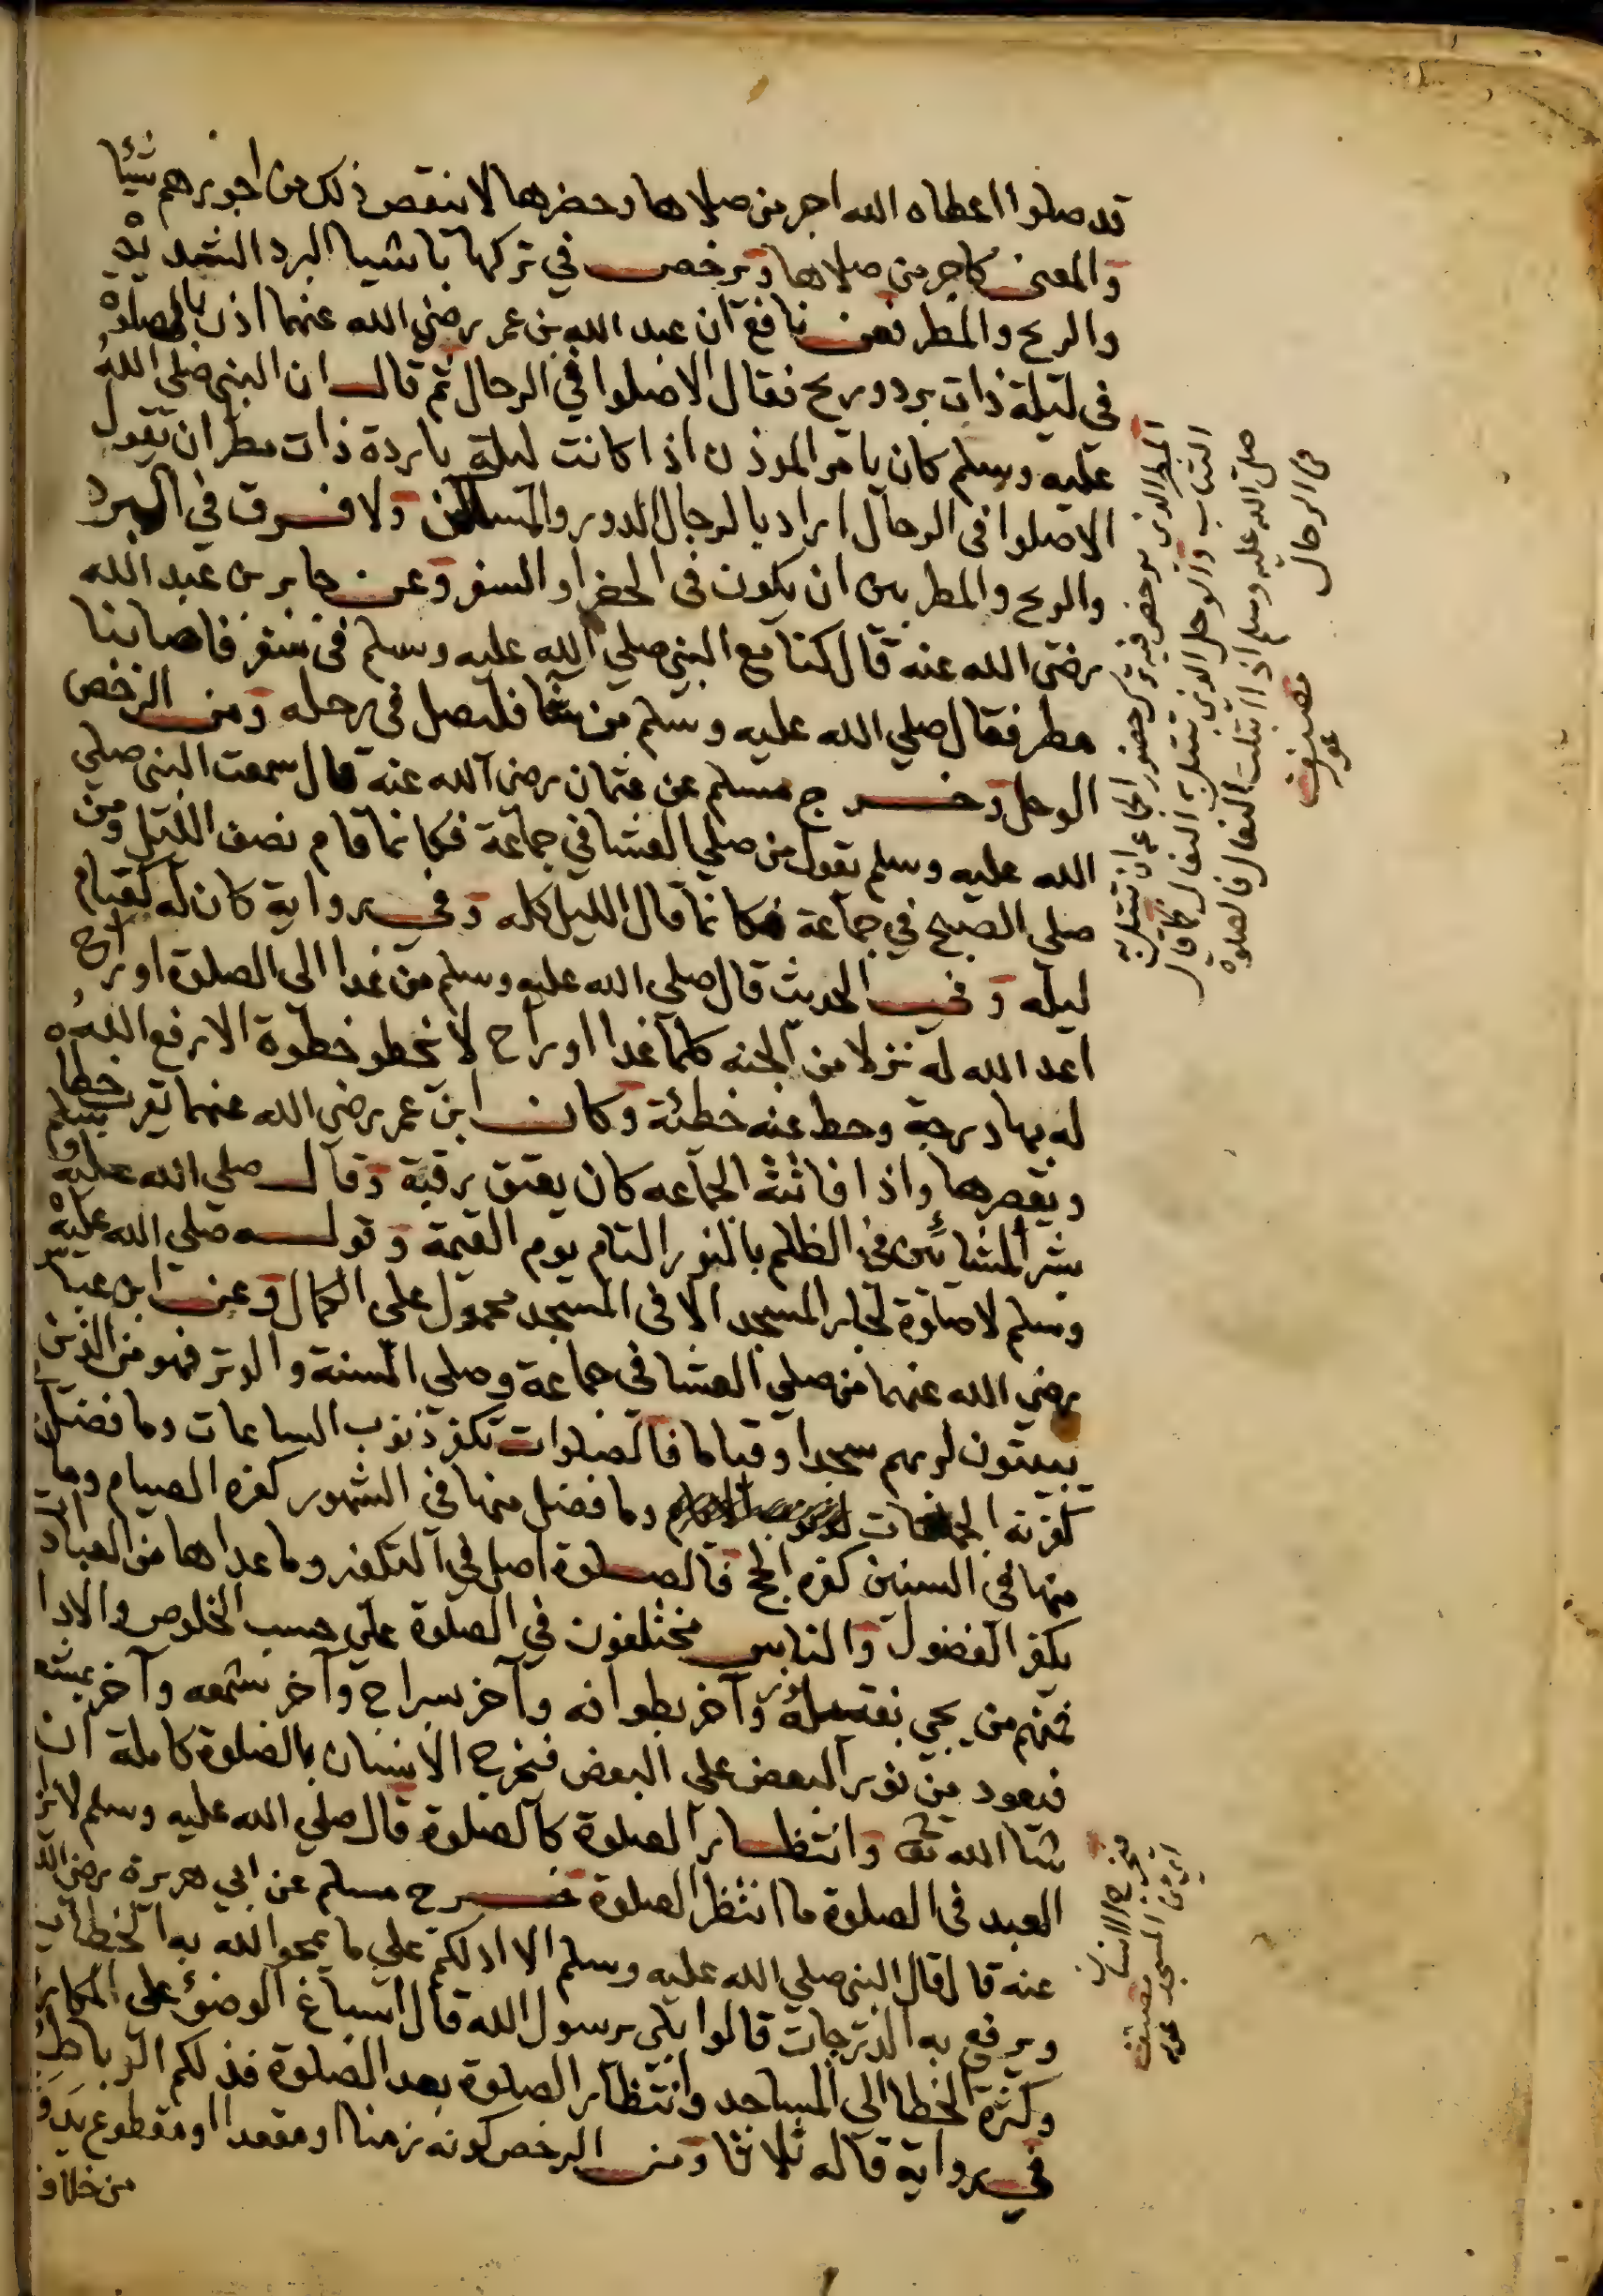 قد صلوا اعطاه الله اجر من صلاها وحضرها لا ينقص ذلك من اجورهم شيئا
والمعنى كاجر من صلاها ويرخص في تركها باشيا البرد الشديد
والريح والمطر فعن نافع ان عبد الله بن عمر رضي الله عنهما اذن بالصلوة
في ليلة ذات برد وريح فقال الا صلوا في الرحال ثم قال ان النبي صلى الله
عليه وسلم كان يامر الموذن اذا كانت ليلة باردة ذات مطر ان يقول
الا صلوا في الرحال اراد بالرحال الدور والمساكن ولا فرق في البرد
والريح والمطر بين ان يكون في الحضر او السفر وعن جابر بن عبد الله
رضي الله عنه قال كنا مع النبي صلي الله عليه وسلم في سفر فاصابنا
مطر فقال صلي الله عليه وسلم من شا فليصل في رحله ومن الرخص
الوحل وخرج مسلم عن عثمان رضي الله عنه قال سمعت النبي صلي
الله عليه وسلم يقول من صلي العشا في جماعة فكانما قام نصف الليل ومن
صلى الصبح في جماعة فكانما قال الليل كله وفي رواية كان له كقيام
ليله وفي الحديث قال صلى الله عليه وسلم من غدا الى الصلوة او راح
اعد الله له نزلا من الجنه كلما غدا او راح لا يخطو خطوة الا رفع الله
له بها درجة وحط عنه خطئة وكان ابن عمر رضي الله عنهما يقرب خطاه
ويقصرها واذا فاتته الجماعه كان يعتق رقبة وقال صلي الله عليه وسلم
بشر المشائين في الظلم بالنور التام يوم القيمة وقوله صلي الله عليه
وسلم لا صلوة لجار المسجد الا في المسجد محمول على الكمال وعن ابن عباس
رضي الله عنهما من صلي العشا في جماعة وصلي السنة والوتر فهو من الذين
يبيتون لربهم سجدا وقياما فالصلوات تكفر ذنوب الساعات وما فضل
كفرته الجماعات وما فضل منها في الشهور كفره الصيام وما
منها في السنين كفره الحج فالصلوة اصل في التكفير وما عداها من العبادات
يكفر الفضول والناس مختلفون في الصلوة على حسب الخلوص والادا
فمنهم من يجي وآخر بطوافه وآخر بسراج وآخر بشمعه وآخر
فيعود من نور البعض على البعض فيخرج الانسان بالصلوة كاملة ان
شا الله تعالى وانتظار الصلوة كالصلوة قال صلي الله عليه وسلم لا يزال
العبد في الصلوة ما انتظر الصلوة خرج مسلم عن ابي هريرة رضي الله
عنه قال قال النبي صلي الله عليه وسلم الا ادلكم علي ما يمحو الله به الخطايا
ويرفع به الدرجات قالوا بلى يرسول الله قال اسباغ الوضؤ على المكاره
وكثرة الخطا الي المساجد وانتظار الصلوة بعد الصلوة فذلكم الرباط
في رواية قاله ثلاثا ومن الرخص كونه زمنا او مقعدا او مقطوع يد
من خلاف
المطر الذي يرخص فيه ترك حضور الجماعة ان تبتل به
الثياب والوحل الذي تبتل به النعال كما قال
صلى الله عليه وسلم اذا ابتلت النعال فالصلوة
في الرحال